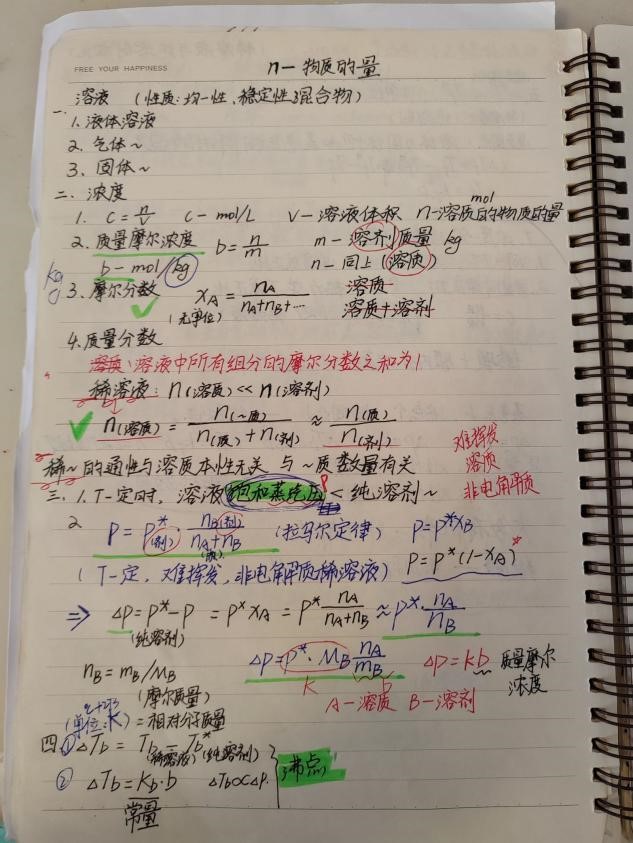 FREE YOUR HAPPINESS
n—物质的量
溶液 (性质:均一性、稳定性混合物)
一.
1.液体溶液
2.气体~
3.固体~
二.浓度
1. C=n/V C—mol/L V—溶液体积 n—溶质的物质的量 mol
2.质量摩尔浓度 b=n/m m—溶剂质量 kg
b—mol/kg n—同上(溶质)
kg
3.摩尔分数 xA=nA/(nA+nB+....) 溶质
(无单位) 溶质+溶剂
4.质量分数
溶质:溶液中所有组分的摩尔分数之和为1
稀溶液:n(溶质)<<n(溶剂)
n(溶质)=n(~质)/(n(质)+n(剂))≈n(质)/n(剂)
稀~的通性与溶质本性无关 与~质数量有关
难挥发
溶质
非电解质
三.1.T一定时,溶液饱和蒸汽压P<纯溶剂~
2 P=P*(剂)·nB(剂)/(nA(质)+nB) (拉乌尔定律) P=P*xB
(T一定,难挥发,非电解质稀溶液) P=P*(1-xA)*
⇒ ΔP=P*-P=P*xA=P*nA/(nA+nB)≈P*·nA/nB
(纯溶剂)
nB=mB/MB ΔP=P*·MB·nA/mB ΔP=kb 质量摩尔浓度
(摩尔质量) K b
A—溶质 B—溶剂
(单位:K) =相对分子质量
四.①ΔTb=Tb-Tb*
(稀溶液)(纯溶剂)
沸点
②ΔTb=Kb·b ΔTb∝ΔP
常量